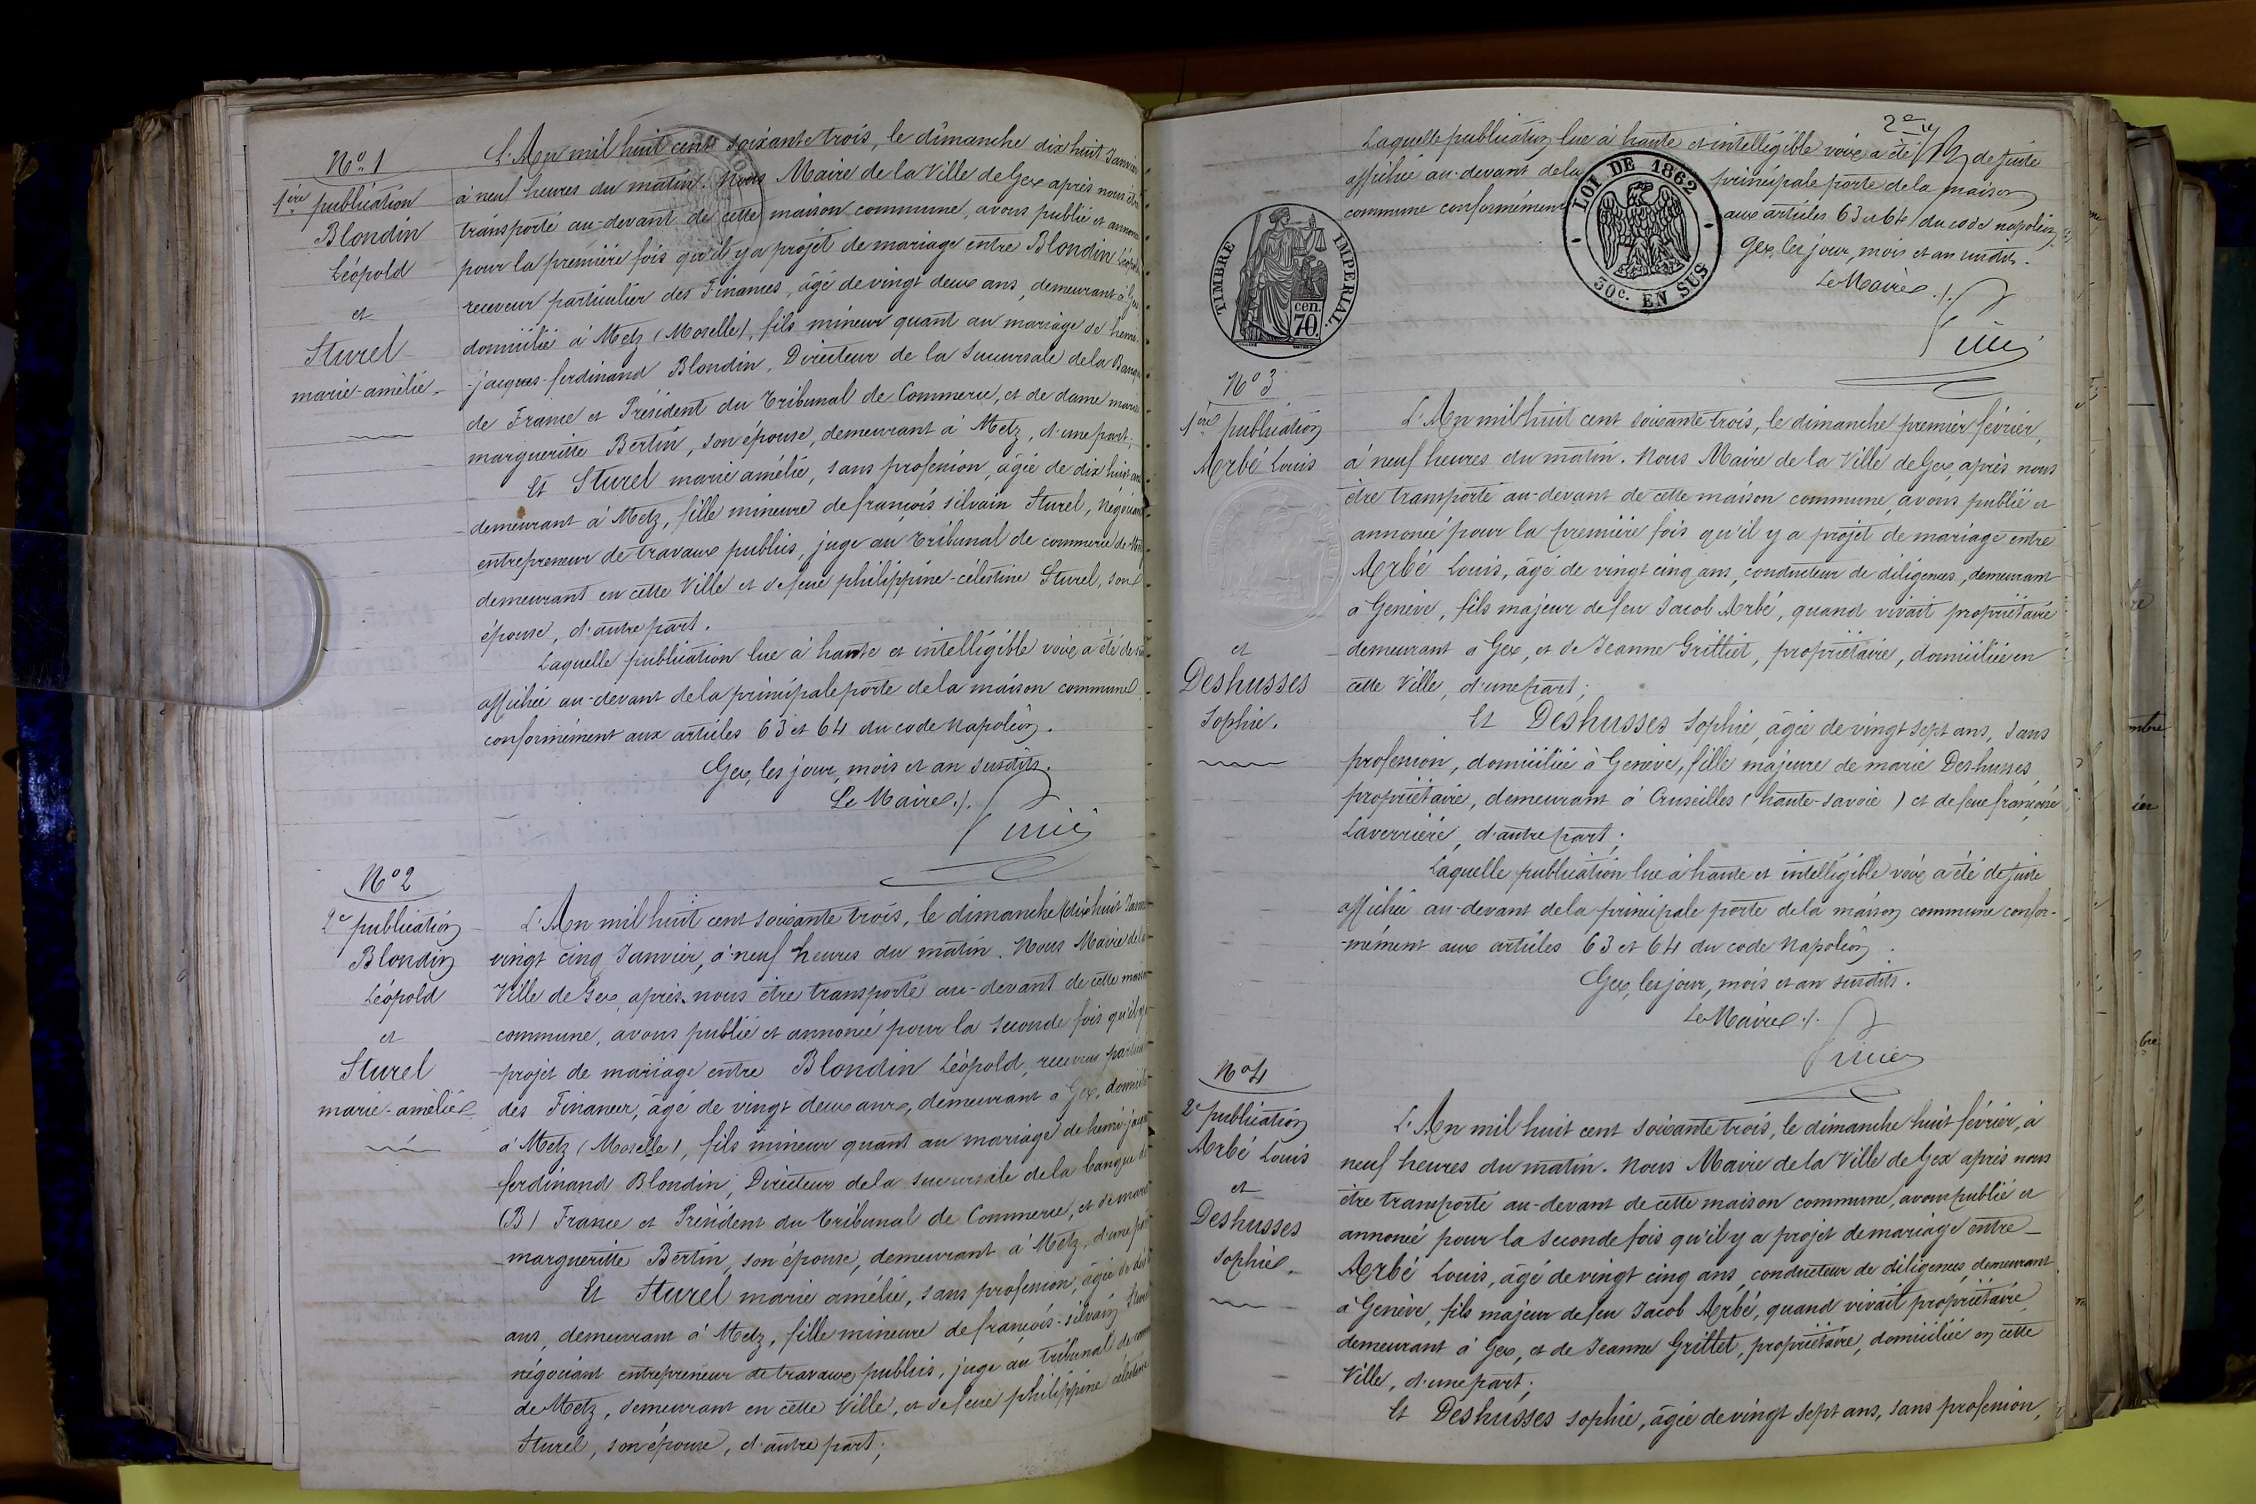 No. 1
1ère publication
Blondin
Léopold
et
Sturel
marie-amélie.
L'An mil huit cent soixante trois, le dimanche dix huit Janvier
à neuf heures du matin. Nous Maire de la Ville de Gex après nous être
transporté au-devant de cette maison commune, avons publié et annoncé
pour la première fois qu'il y a projet de mariage entre Blondin Léopold
receveur particulier des Finances, âgé de vingt deux ans, demeurant à Gex
domicilié à Metz (Moselle), fils mineur quant au mariage de henri-
-jacques-ferdinand Blondin, Directeur de la Succursale de la Banque
de France et Président du Tribunal de Commerce, et de dame marie
margueritte Bertin, son épouse, demeurant à Metz, d'une part;
Et Sturel marie amélie, sans profession, âgée de dix huit ans
demeurant à Metz, fille mineure de françois silvain Sturel, Négociant
entrepreneur de travaux publics, juge au Tribunal de commerce de Metz
demeurant en cette Ville et de feue philippine-célestine Sturel, son
épouse, d'autre part.
Laquelle publication lue à haute et intelligible voix a été de suite
affichée au-devant de la principale porte de la maison commune
conformément aux articles 63 et 64 du code Napoléon.
Gex, les jour, mois et an susdits.
Le Maire./.
No 2
2e publication
Blondin
Léopold
et
Sturel
marie-amélie
L'An mil huit cent soixante trois, le dimanche (dix huit Janvier
vingt cinq Janvier, à neuf heures du matin. Nous Maire de la
Ville de Gex, après nous être transporté au-devant de cette maison
commune, avons publié et annoncé pour la seconde fois qu'il y a
projet de mariage entre Blondin Léopold, receveur particulier
des Finances, âgé de vingt deux ans, demeurant à Gex, domicilié
à Metz (Moselle), fils mineur quant au mariage de henri-jacques
ferdinand Blondin, Directeur de la succursale de la banque de
(B) France et Président du Tribunal de Commerce, et de marie
margueritte Bertin, son épouse, demeurant à Metz, d'une part
Et Sturel marie amélie, sans profession, âgée de dix huit
ans, demeurant à Metz, fille mineure de françois-silvain Sturel
négociant entrepreneur de travaux publics, juge au tribunal de commerce
de Metz, demeurant en cette Ville, et de feue philippine célestine
Sturel, son épouse, d'autre part;
2e
Laquelle publication lue à haute et intelligible voix a été de suite
affichée au-devant de la principale porte de la maison
commune conformément aux articles 63 et 64 du code napoléon.
Gex, les jour, mois et an susdits.
Le Maire./.
LOI DE 1862
30c. EN SUS
TIMBRE IMPERIAL.
cen.
70.
No 3
1ère publication
Arbé Louis
et
Deshusses
Sophie.
L'An mil huit cent soixante trois, le dimanche premier février,
à neuf heures du matin. Nous Maire de la Ville de Gex, après nous
être transporté au-devant de cette maison commune, avons publié et
annoncé pour la première fois qu'il y a projet de mariage entre
Arbé Louis, âgé de vingt cinq ans, conducteur de diligences, demeurant
à Genève, fils majeur de feu Jacob Arbé, quand vivait propriétaire
demeurant à Gex, et de Jeanne Grillet, propriétaire, domiciliée en
cette Ville, d'une part;
Et Deshusses Sophie, âgée de vingt sept ans, sans
profession, domiciliée à Genève, fille majeure de marie Deshusses,
propriétaire, demeurant à Cruseilles (haute-savoie) et de feue françoise
Laverrière, d'autre part;
Laquelle publication lue à haute et intelligible voix a été de suite
affichée au-devant de la principale porte de la maison commune confor-
-mément aux articles 63 et 64 du code Napoléon.
Gex, les jour, mois et an susdits.
Le Maire./.
No 4
2e publication
Arbé Louis
et
Deshusses
sophie.
L'An mil huit cent soixante trois, le dimanche huit février, à
neuf heures du matin. Nous Maire de la Ville de Gex après nous
être transporté au-devant de cette maison commune, avons publié et
annoncé pour la seconde fois qu'il y a projet de mariage entre
Arbé Louis, âgé de vingt cinq ans, conducteur de diligences, demeurant
à Genève, fils majeur de feu Jacob Arbé, quand vivait propriétaire,
demeurant à Gex, et de Jeanne Grillet, propriétaire, domiciliée en cette
Ville, d'une part;
Et Deshusses sophie, âgée de vingt sept ans, sans profession,